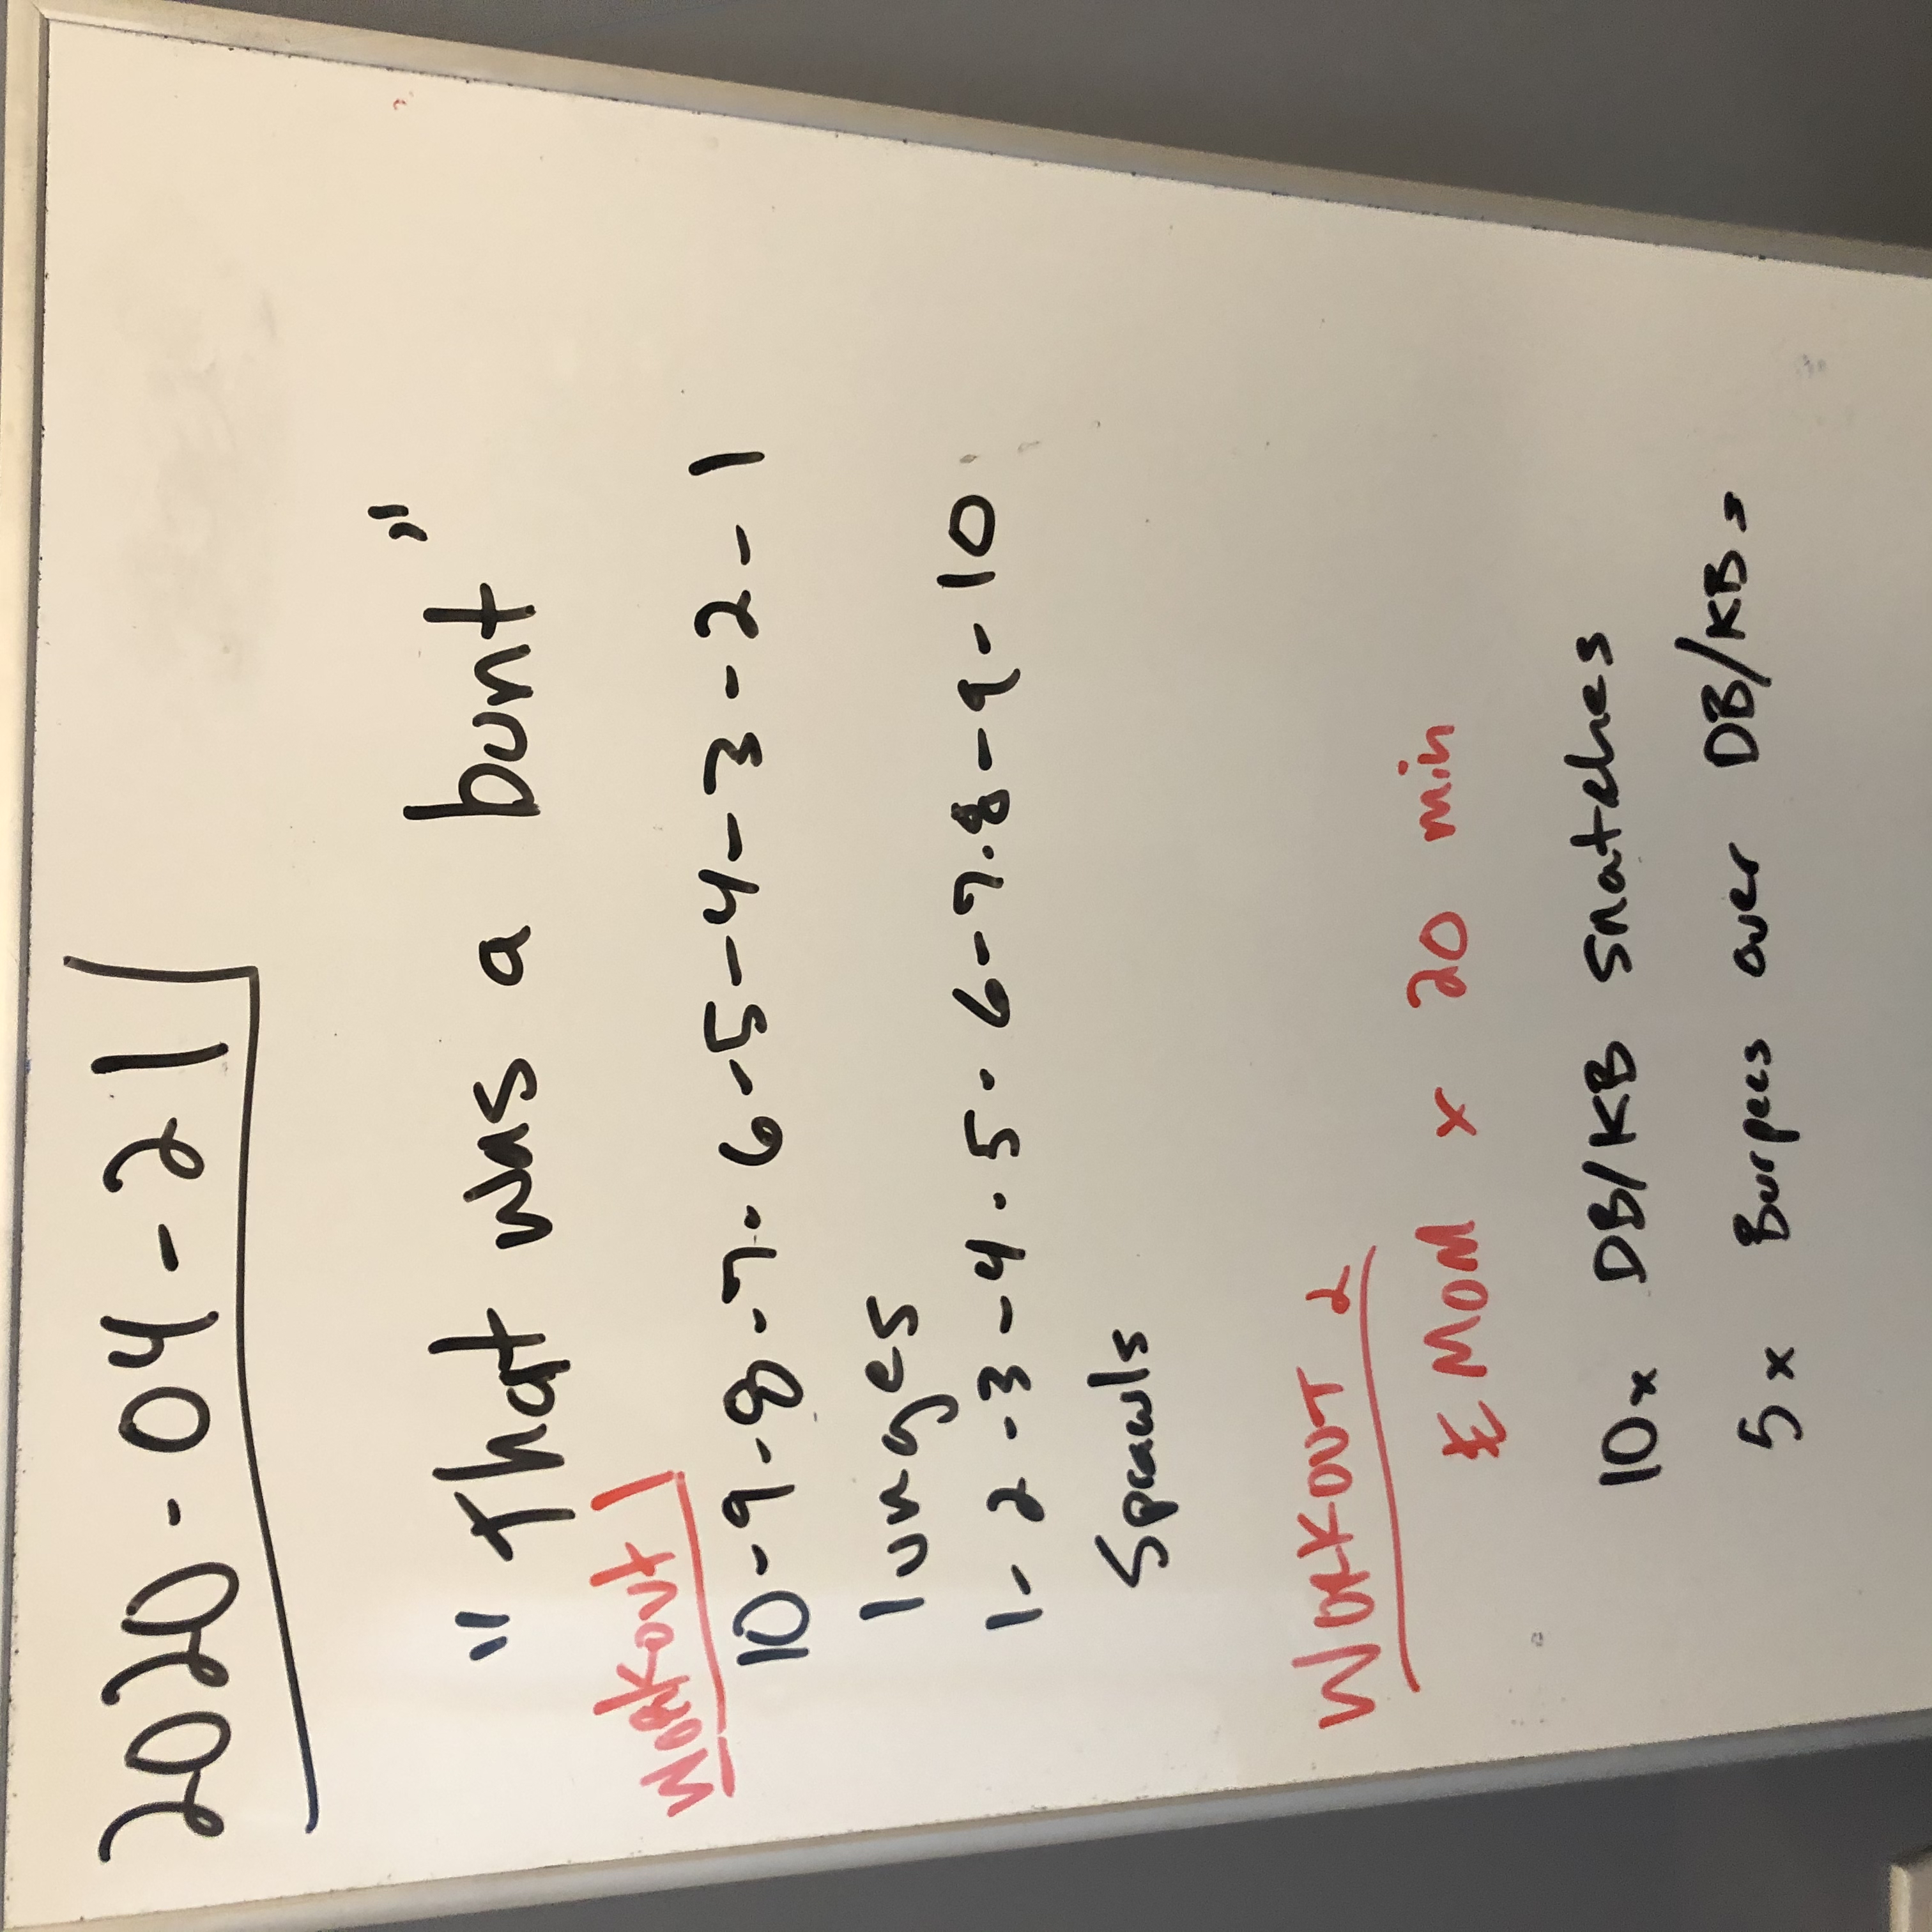 2020-04-21
"That was a bunt"
Workout 1
10-9-8-7-6-5-4-3-2-1
lunges
1-2-3-4-5-6-7-8-9-10
Sprawls
WORKOUT 2
EMOM x 20 min
10x DB/KB snatches
5x Burpees over DB/KBs